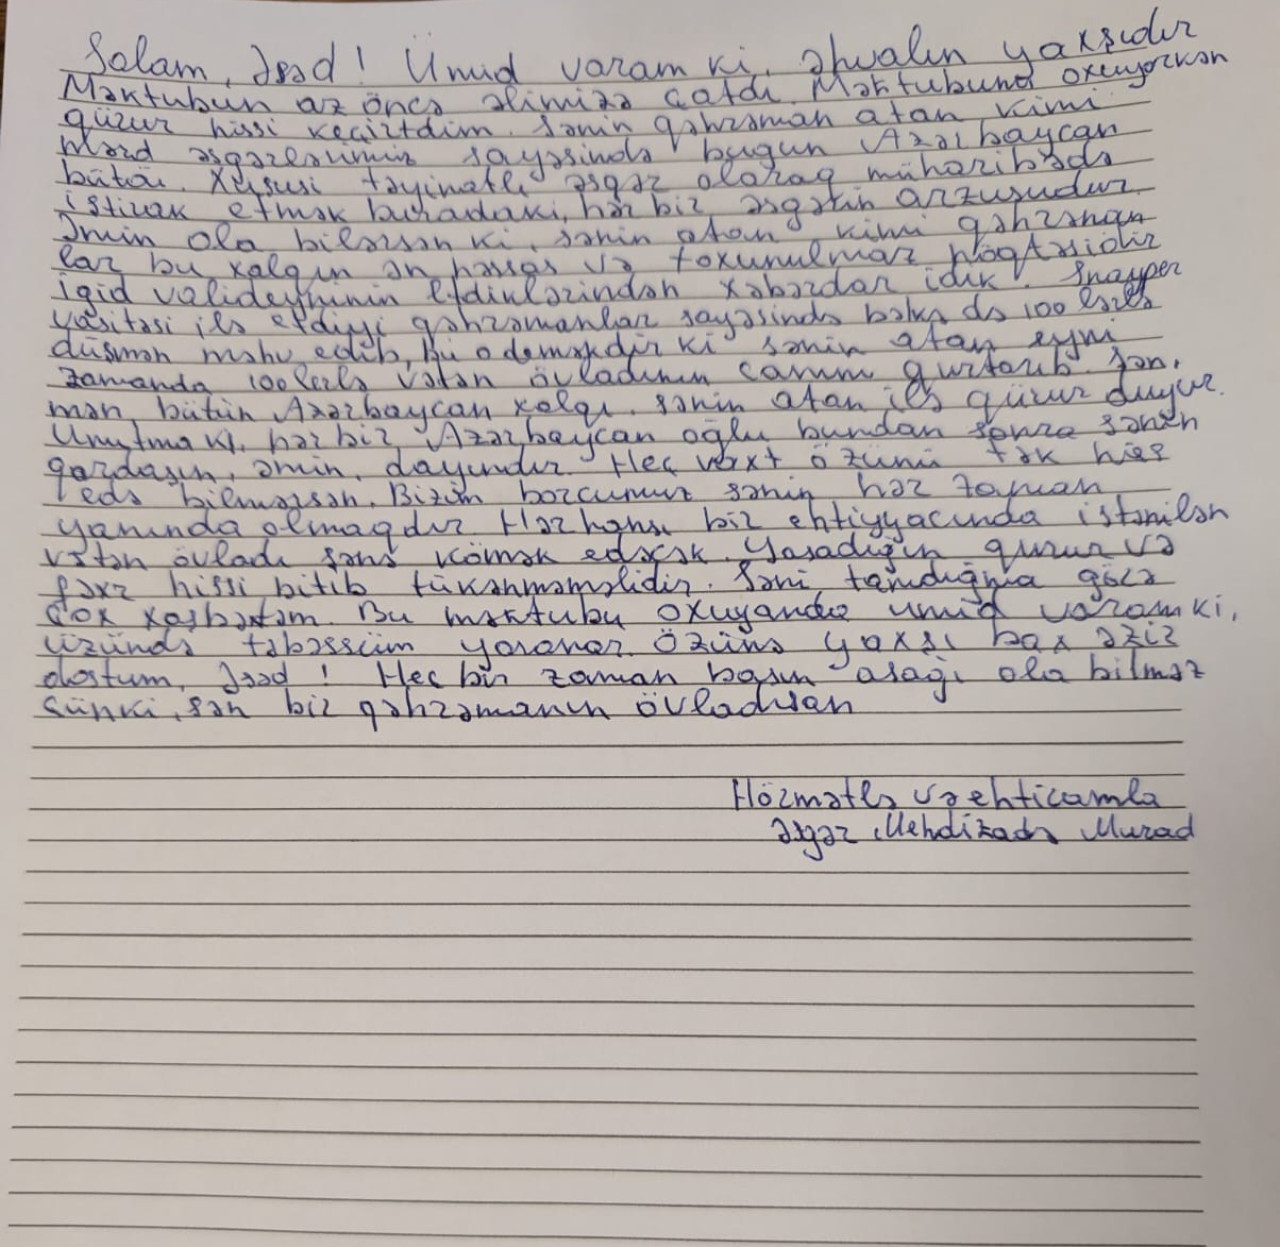 Salam, Əsəd! Ümid varam ki, əhvalın yaxşıdır
Məktubun az öncə əlimizə çatdı. Məktubuna oxuyorkən
güzur hissi keçirtdim. Sənin qəhrəman atan kimi
mərd əsgərlərimiz sayəsində bugun Azərbaycan
bütöv. Xüsusi təyinatlı əsgər olaraq müharibədə
iştirak etmək buradakı, hər bir əsgərin arzusudur.
Əmin ola bilərsən ki, sənin atan kimi qəhrəman
lar bu xalqın ən həssas və toxunulmaz nöqtəsidir
İgid valideyninin etdiklərindən xəbərdar idik. Snayper
vasitəsi ilə etdiyi qəhrəmanlar sayəsində bəlkə də 100 lərlə
düşmən məhv edib, Bu o deməkdir ki sənin atan eyni
zamanda 100lərlə vətən övladının canını qurtarıb. Sən,
mən, bütün Azərbaycan xalqı, sənin atan ilə güzur duyur.
Unutma ki, hər bir Azərbaycan oğlu bundan sonra sənin
qardaşın, əmin, dayındır. Heç vaxt özünü tək hiss
edə bilməzsən. Bizim borcumuz sənin hər zaman
yanında olmaqdır Hər hansı bir ehtiyyacında istənilən
vətən övladı sənə kömək edəcək. Yaşadığın qurur və
fəxr hissi bitib tükənməməlidir. Səni tanıdığıma görə
Çox xoşbəxtəm. Bu məktubu oxuyanda umid varam ki,
üzündə təbəssüm yaranar. Özünə yaxşı bax əziz
dostum, Əsəd! Heç bir zaman başın aşağı ola bilməz
Çünki, sən bir qəhrəmanın övladısan
Hözmətlə və ehticamla
Əsgər Mehdizadə Murad